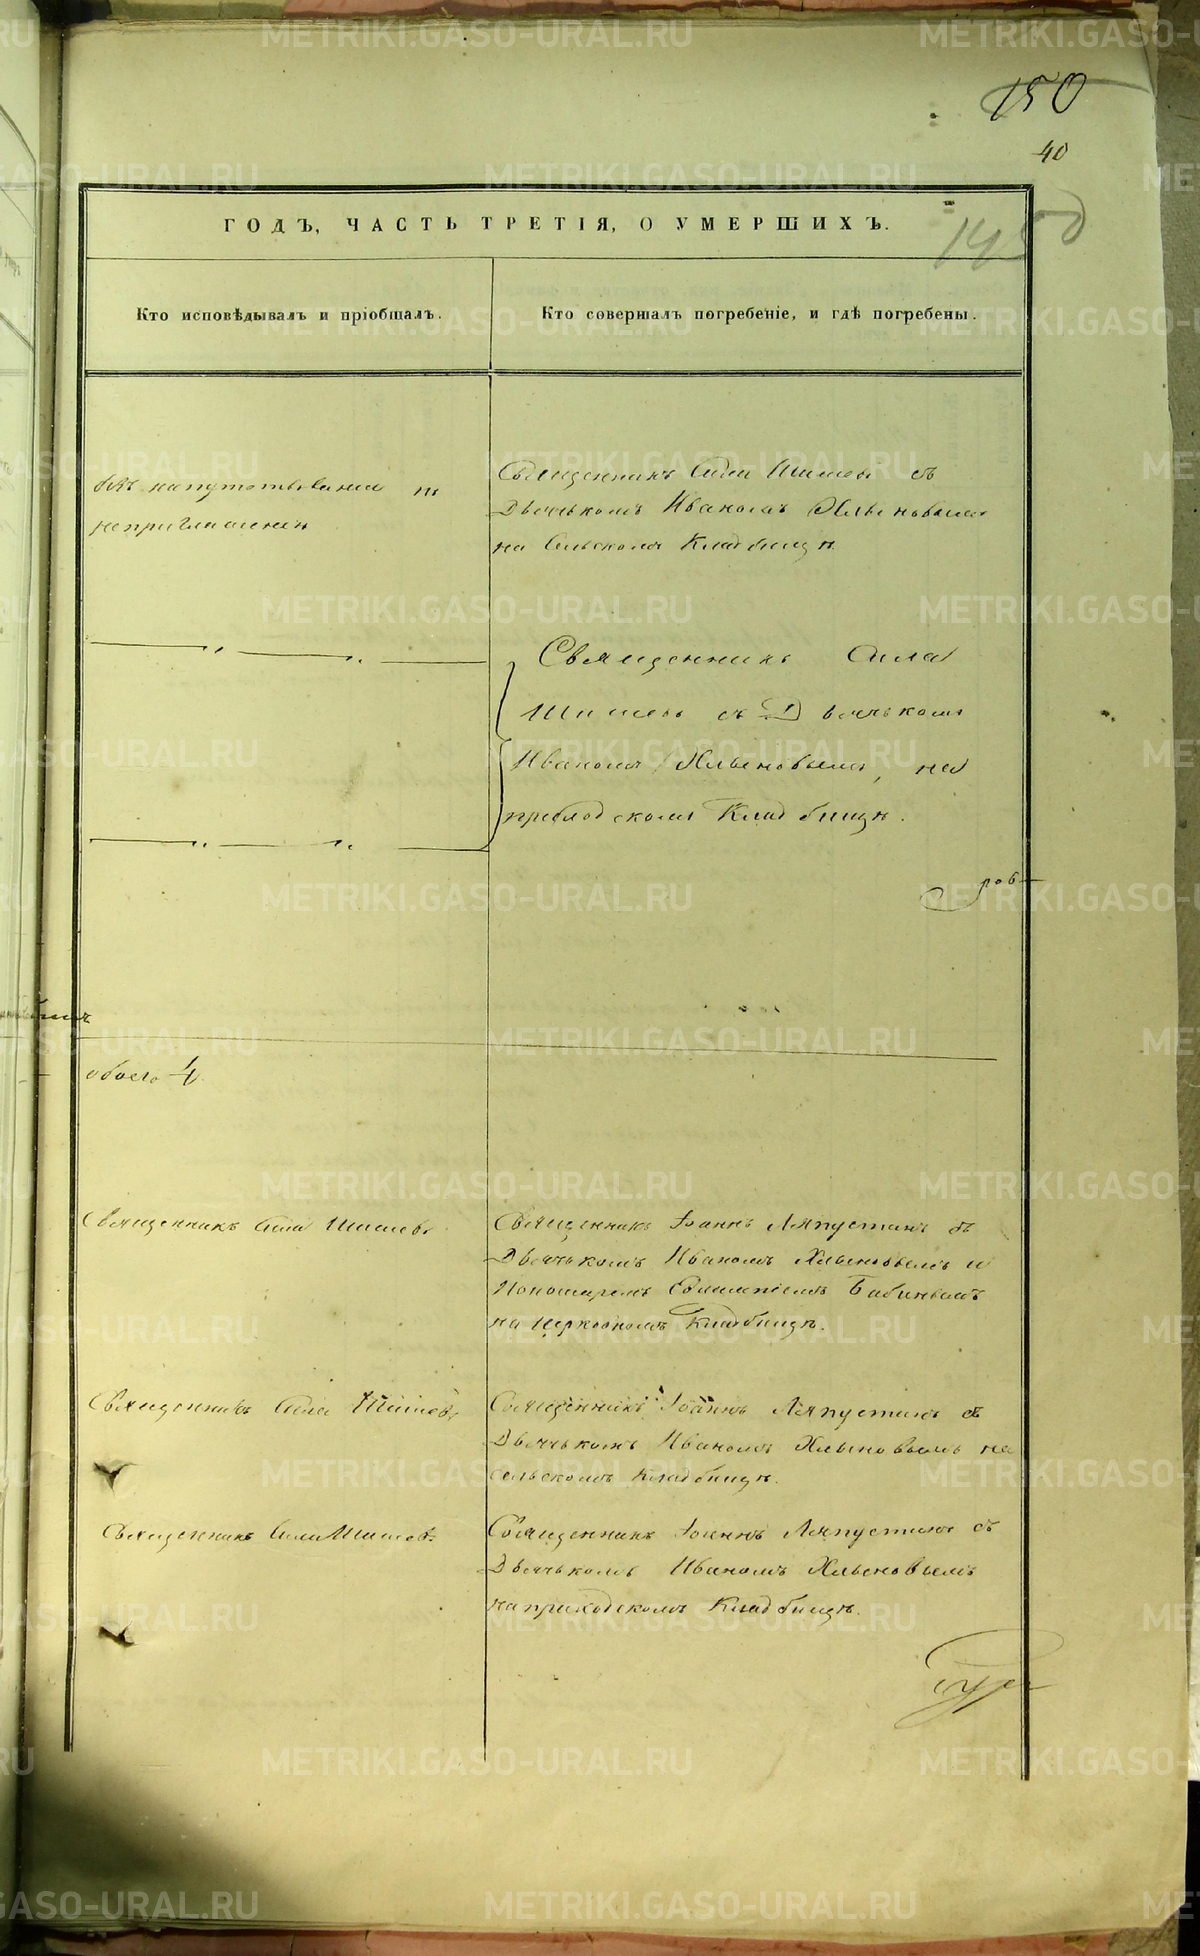 150
40
ГОДЪ, ЧАСТЬ ТРЕТІЯ, О УМЕРШИХЪ.
Кто исповѣдывалъ и пріобщалъ.
Кто совершалъ погребеніе, и гдѣ погребены.
напутствованія
неприглашенію
Священникъ Сила Шишевъ съ
Дьячькомъ Иваномъ Хлыновымъ
на сельскомъ Кладбищѣ
Священникъ Сила
Шишевъ съ Дьячькомъ
Иваномъ Хлыновымъ, на
приходскомъ Кладбищѣ.
обоего 4.
Священникъ Сила Шишевъ
Священникъ Іоаннъ Ляпустинъ съ
Дьячькомъ Иваномъ Хлыновымъ и
Пономаремъ Бабинымъ
на Церковномъ Кладбищѣ.
Священникъ Сила Шишевъ
Священникъ Іоаннъ Ляпустинъ съ
Дьячькомъ Иваномъ Хлыновымъ на
сельскомъ Кладбищѣ.
Священникъ Сила Шишевъ
Священникъ Іоаннъ Ляпустинъ съ
Дьячькомъ Иваномъ Хлыновымъ
на приходскомъ Кладбищѣ.
METRIKI.GASO-URAL.RU